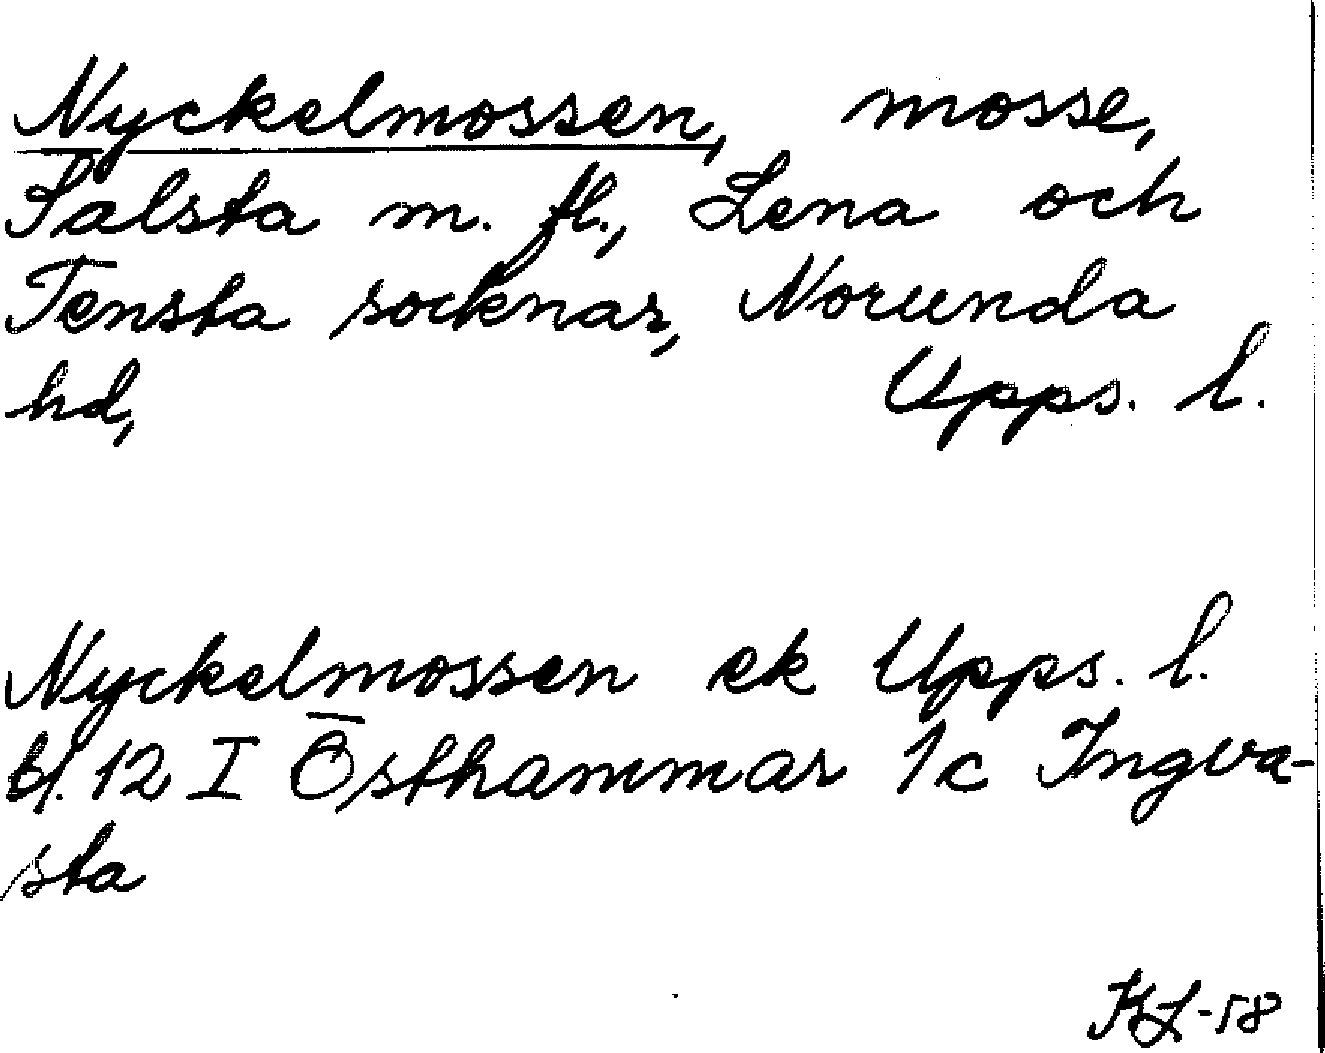 Nyckelmossen, mosse,
Salsta m. fl., Lena och
Tensta socknar, Norunda
hd, Upps. l.
Nyckelmossen ek Upps. l.
bl. 12 I Östhammar 1c Ingva-
sta
KL-58